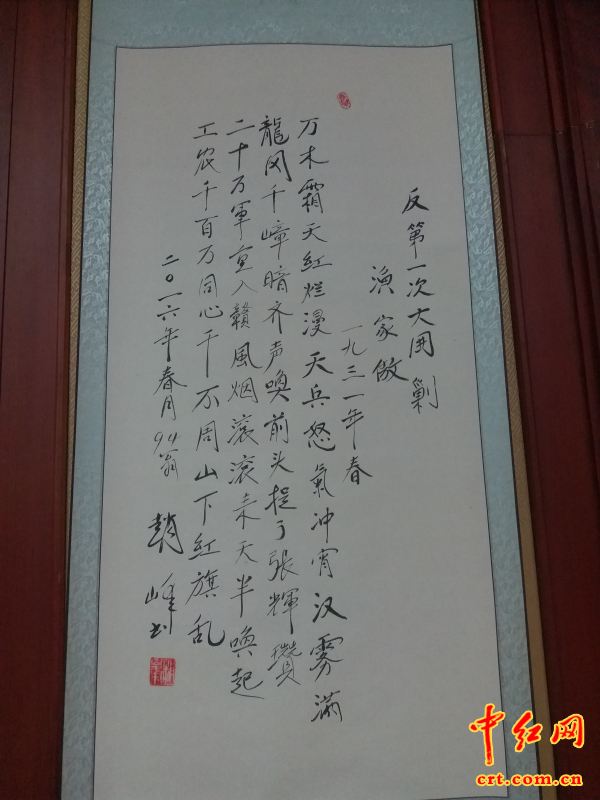 反第一次大围剿
渔家傲
一九三一年春
万木霜天红烂漫天兵怒氣冲宵汉雾满
龍冈千嶂暗齐声唤前头捉了張輝瓚
二十万軍重入贛風烟滚滚来天半唤起
工农千百万同心干不周山下红旗乱
二〇一六年春月94翁
趙峰书
中红网
crt.com.cn